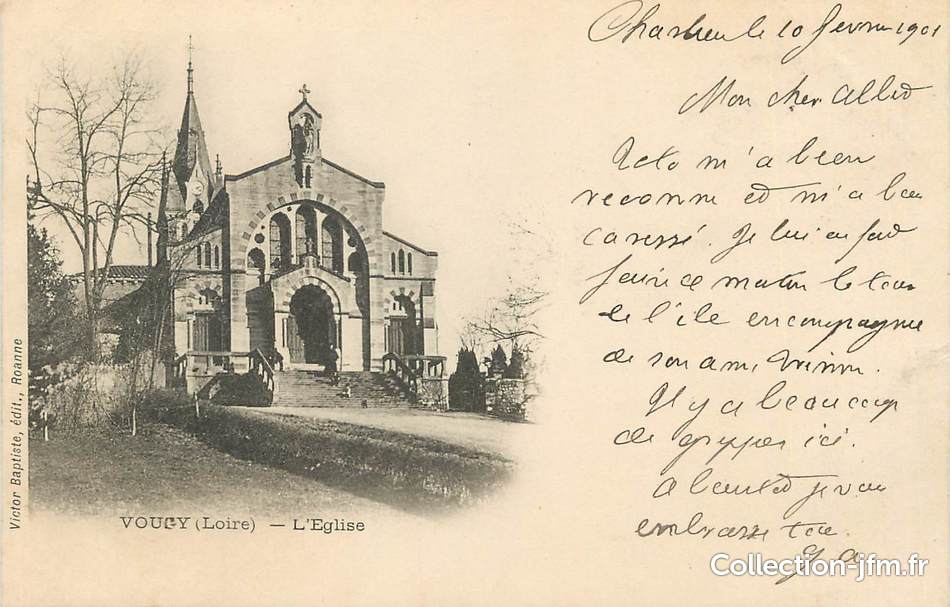 Charlieu le 10 fevrier 1901
Mon cher Albert
m'a bien
reconnu et m'a bien
caressé. Je lui ai fait
faire ce matin le tour
de l'ile en compagnie
de son ami
Il y a beaucoup
de grippes ici.
A bientot je vous
embrasse tous
Victor Baptiste, édit., Roanne
VOUGY (Loire) — L'Eglise
Collection-jfm.fr